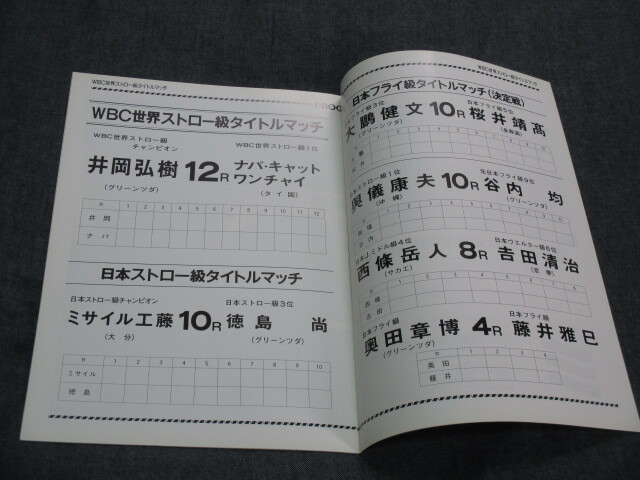 WBC世界ストロー級タイトルマッチ
WBC世界ストロー級タイトルマッチ
WBC世界ストロー級
チャンピオン
WBC世界ストロー級1位
井岡弘樹 12R ナパ・キャット
ワンチャイ
(グリーンツダ)
(タイ国)
R 1 2 3 4 5 6 7 8 9 10 11 12
井岡
ナパ
日本ストロー級タイトルマッチ
日本ストロー級チャンピオン
日本ストロー級3位
ミサイル工藤 10R 徳島 尚
(大分)
(グリーンツダ)
R 1 2 3 4 5 6 7 8 9 10
ミサイル
徳島
WBC世界ストロー級タイトルマッチ
PROG
日本フライ級タイトルマッチ(決定戦)
フライ級3位
日本フライ級5位
大鵬健文 10R 桜井靖高
(グリーンツダ)
ストロー級1位
元日本フライ級9位
奥儀康夫 10R 谷内 均
(沖縄)
(グリーンツダ)
日本Jミドル級4位
日本ウエルター級6位
西條岳人 8R 吉田清治
(サカエ)
西條
吉田
日本フライ級
日本フライ級
奥田章博 4R 藤井雅巳
(グリーンツダ)
R 1 2 3 4
奥田
藤井